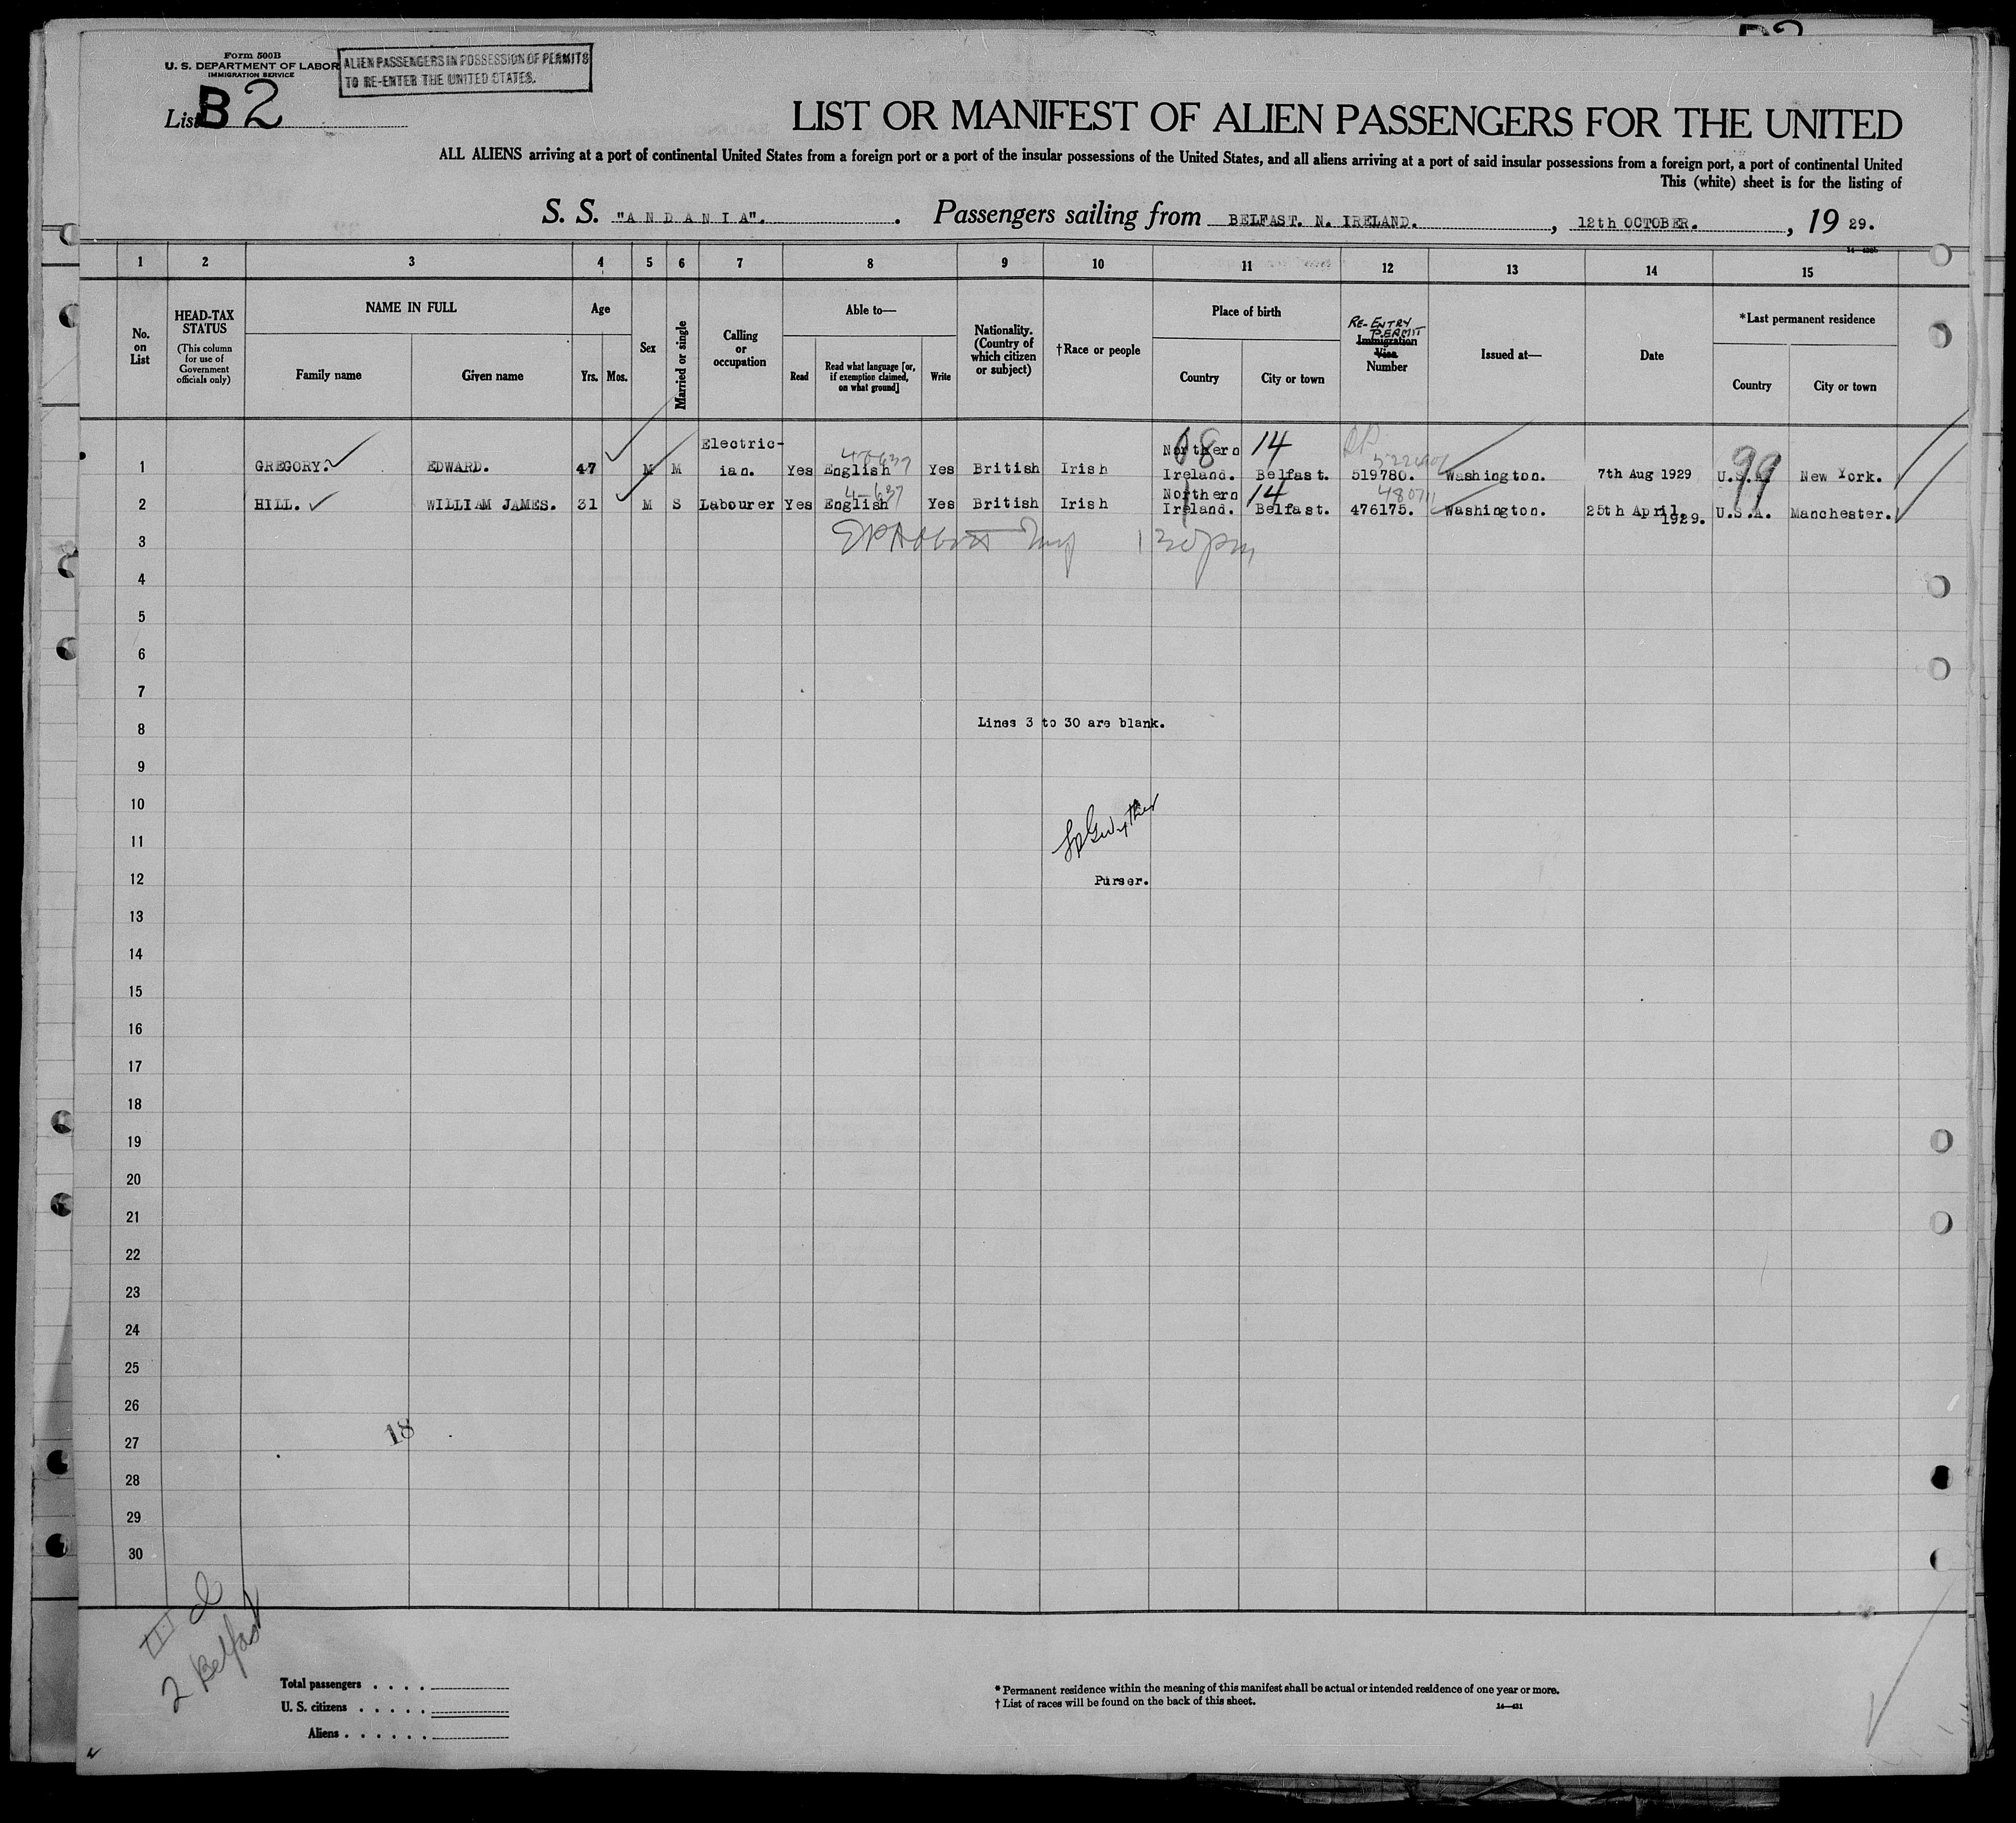 Form 500B
U. S. DEPARTMENT OF LABOR
IMMIGRATION SERVICE
ALIEN PASSENGERS IN POSSESSION OF PERMITS
TO RE-ENTER THE UNITED STATES.
List B 2
LIST OR MANIFEST OF ALIEN PASSENGERS FOR THE UNITED
ALL ALIENS arriving at a port of continental United States from a foreign port or a port of the insular possessions of the United States, and all aliens arriving at a port of said insular possessions from a foreign port, a port of continental United
This (white) sheet is for the listing of
S. S. "A N D A N I A". Passengers sailing from BELFAST. N. IRELAND. , 12th OCTOBER. , 19 29.
1 2 3 4 5 6 7 8 9 10 11 12 13 14 15
No. on List
HEAD-TAX STATUS
(This column for use of Government officials only)
NAME IN FULL
Family name
Given name
Age
Yrs. Mos.
Sex
Married or single
Calling or occupation
Able to—
Read
Read what language [or, if exemption claimed, on what ground]
Write
Nationality. (Country of which citizen or subject)
†Race or people
Place of birth
Country
City or town
RE-ENTRY PERMIT
Immigration Visa Number
Issued at—
Date
*Last permanent residence
Country
City or town
1 GREGORY. EDWARD. 47 M M Electric-ian. Yes English Yes British Irish Northern Ireland. Belfast. 519780. Washington. 7th Aug 1929 U.S.A. New York.
08 14 99
2 HILL. WILLIAM JAMES. 31 M S Labourer Yes English Yes British Irish Northern Ireland. Belfast. 476175. Washington. 25th April. 1929. U.S.A. Manchester.
14 48071
3
130pm
4
5
6
7
8
Lines 3 to 30 are blank.
9
10
11
12
Purser.
13
14
15
16
17
18
19
20
21
22
23
24
25
26
27
18
28
29
30
2 Belfast
Total passengers . . . .
U. S. citizens . . . . .
Aliens . . . . . .
* Permanent residence within the meaning of this manifest shall be actual or intended residence of one year or more.
† List of races will be found on the back of this sheet.
14—431